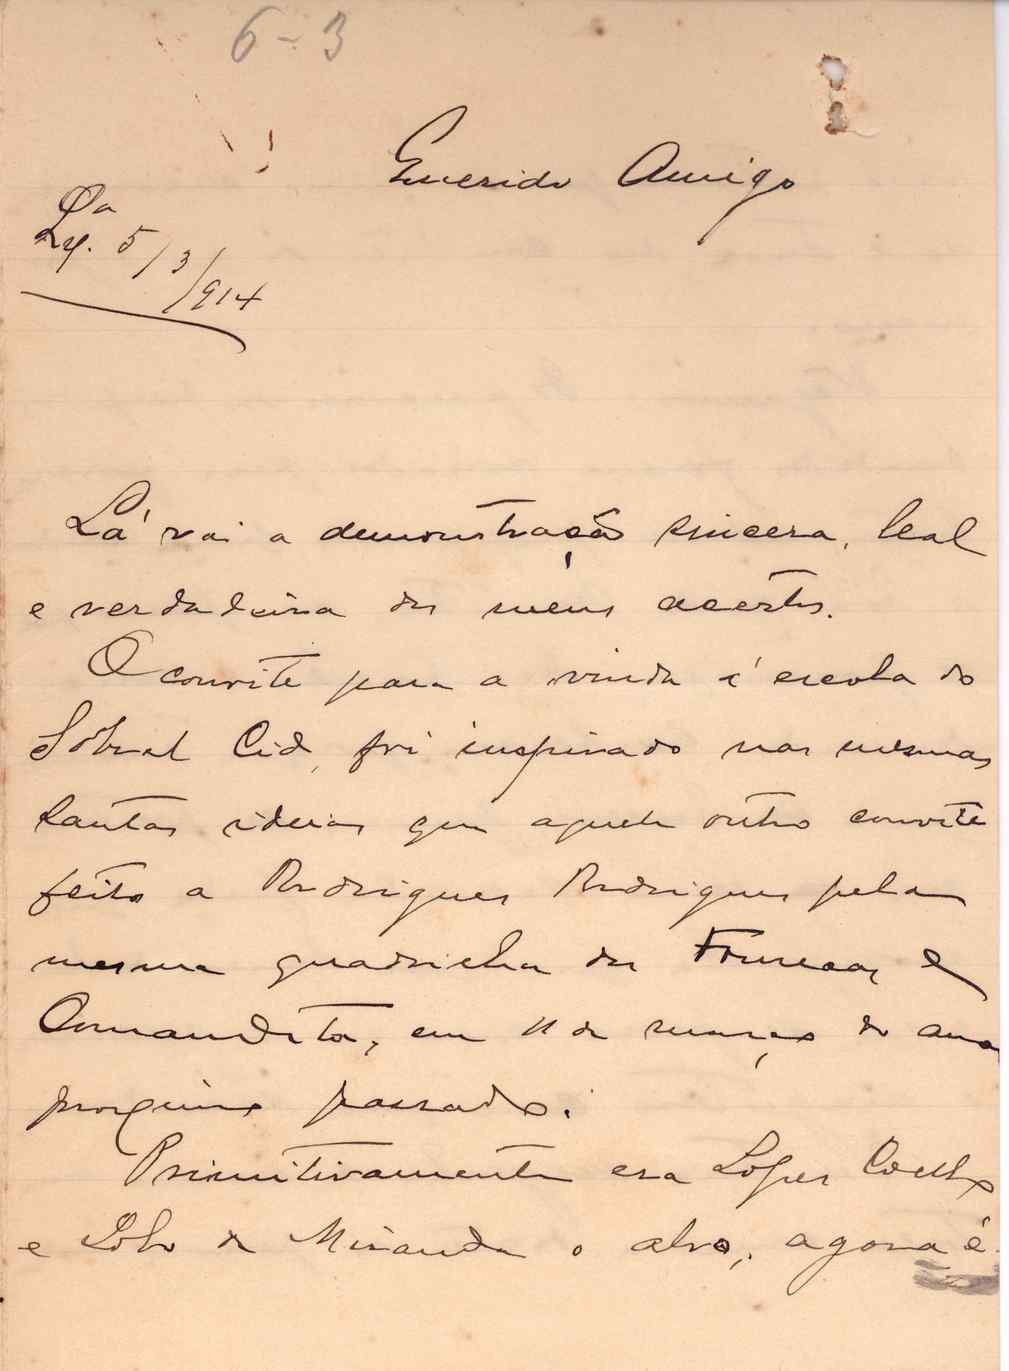 6-3
Querido Amigo
Da
Lx. 5/3/914
Lá vai a demonstração sincera, leal
e verdadeira dos meus acertos.
O convite para a vinda á escola do
Sobral Cid, foi inspirado nas mesmas
santas ideias que aquele outro convite
feito a Rodrigues Rodrigues pela
mesma quadrilha do e
Comandita, em 11 de março do ano
proximo passado.
Primitivamente era Lopes Coelho
e Lobo de Miranda o alvo, agora é